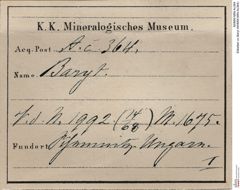 K. K. Mineralogisches Museum.
Acq.-Post A. c. 364.
Name Baryt.
1992 (14/68) M. 1675.
Fundort Schemnitz Ungarn.
I